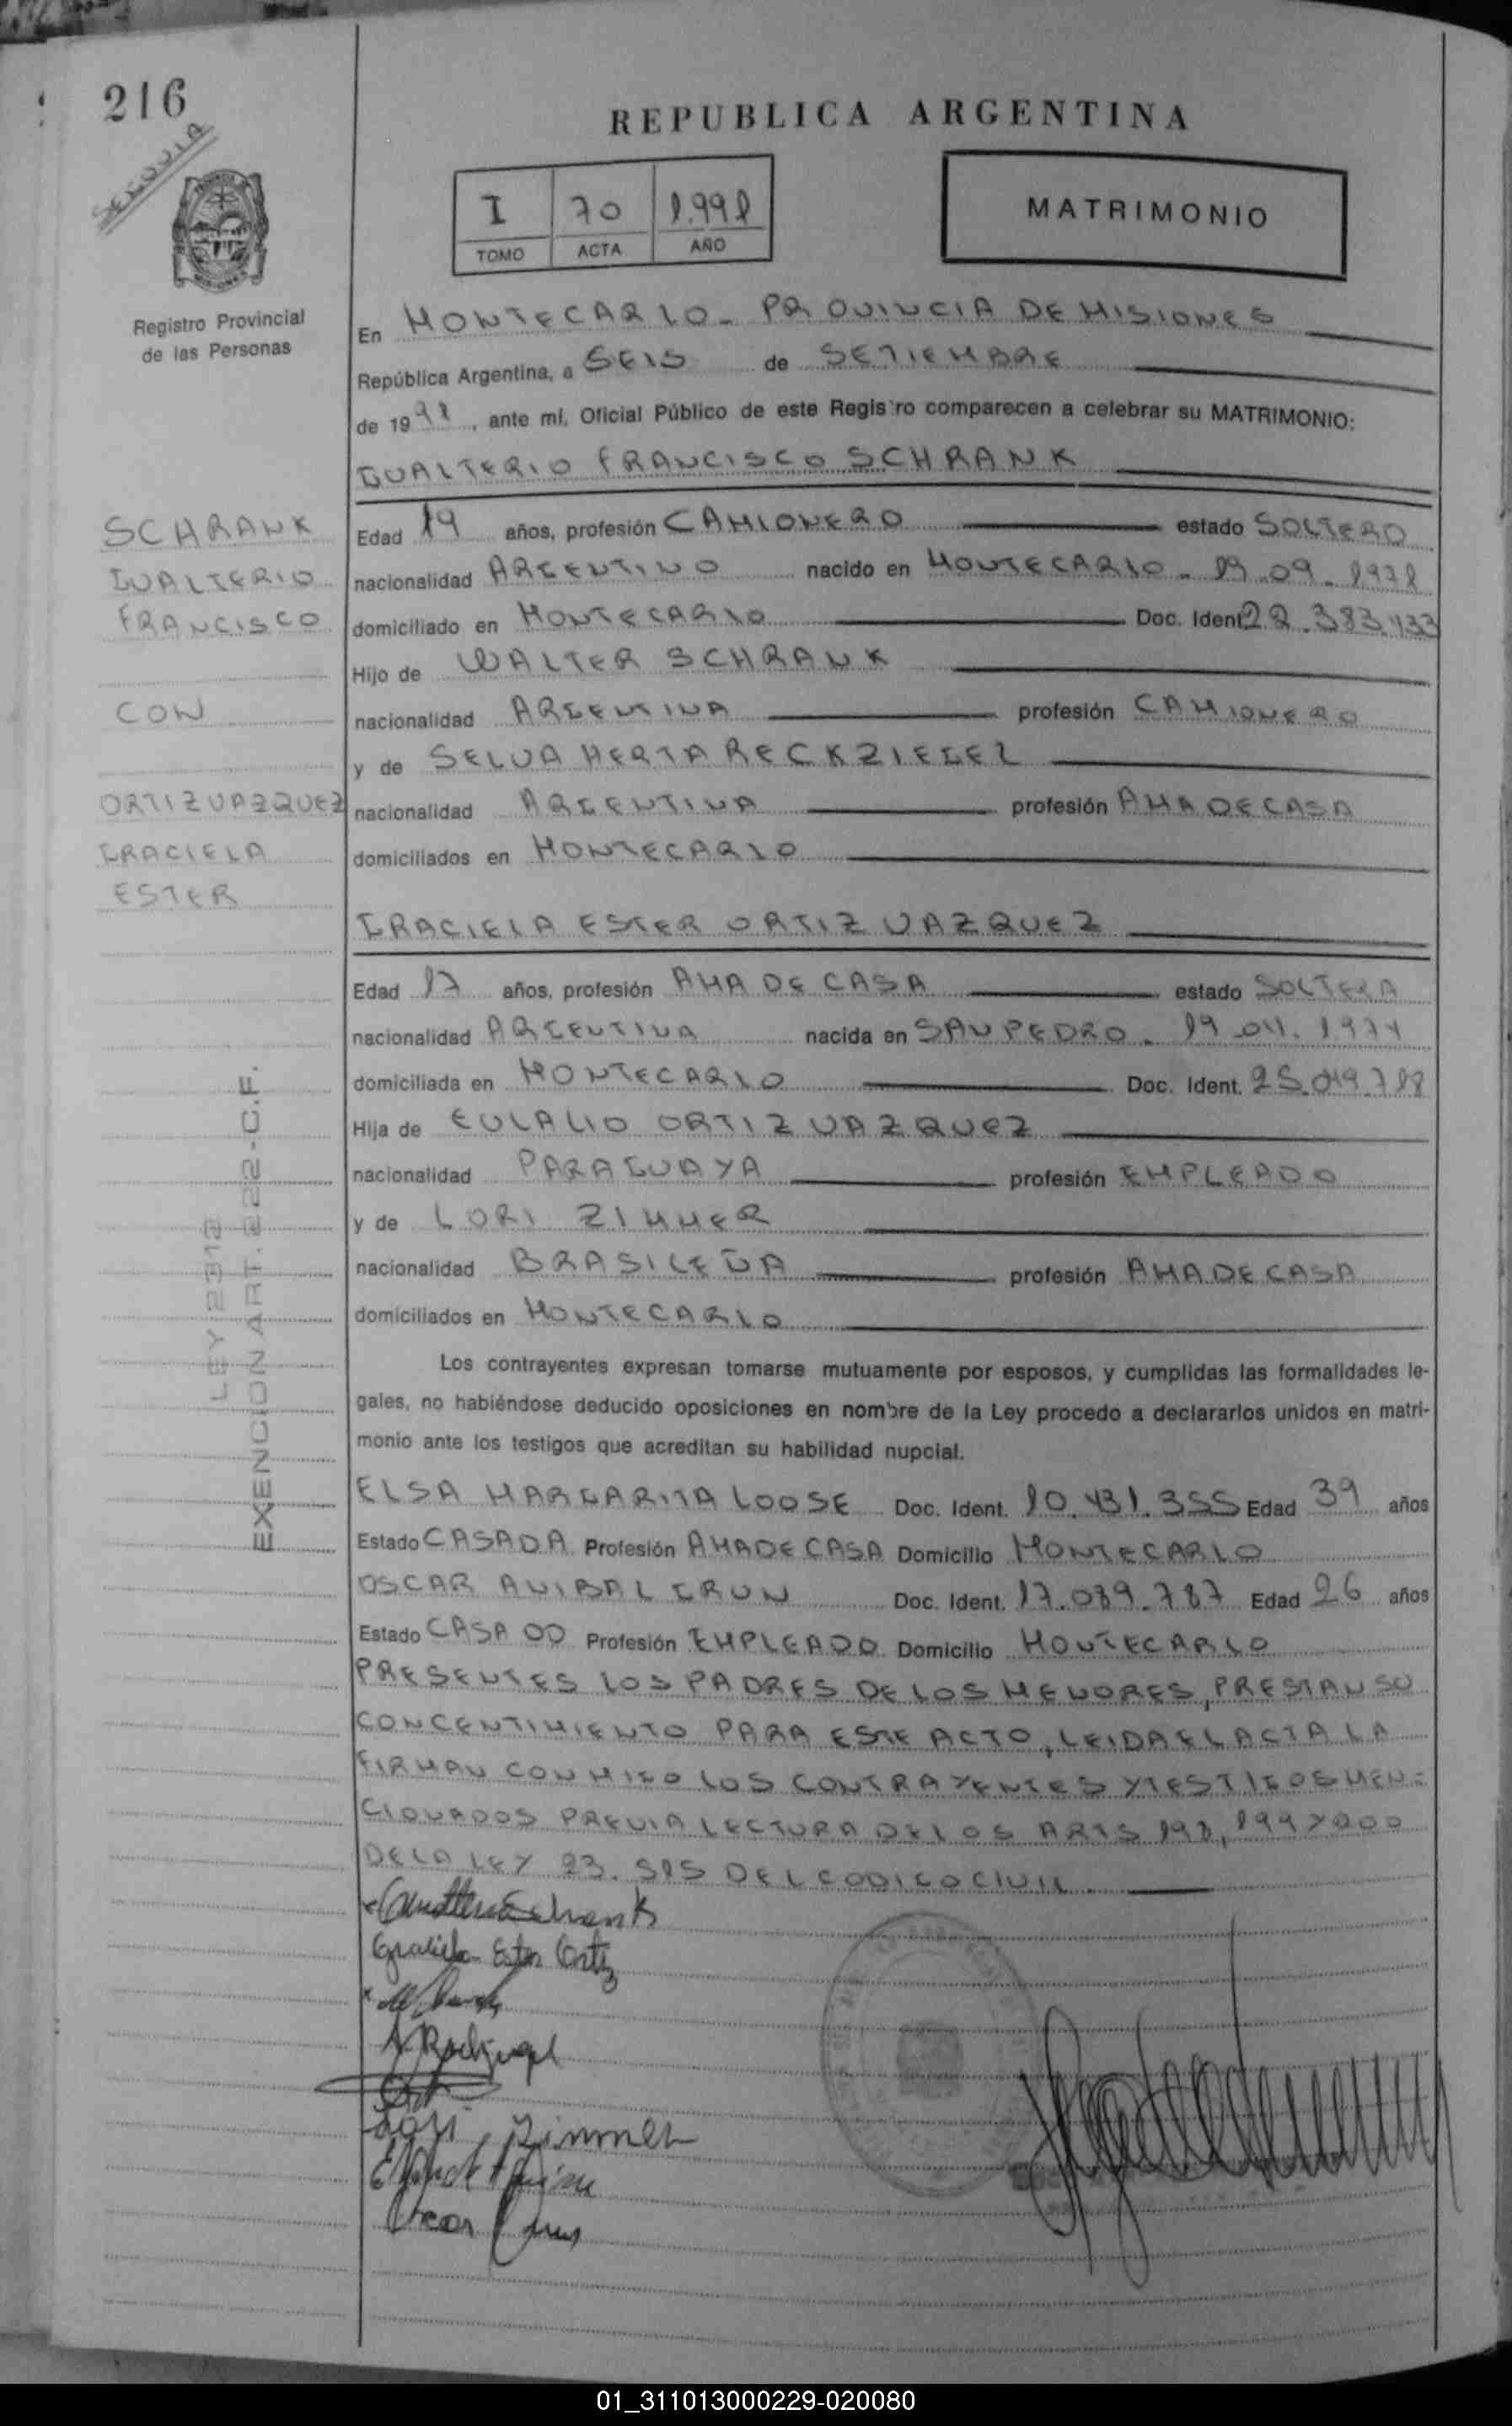 216
SEGOVIA
REPUBLICA ARGENTINA
I 70 1.991
TOMO ACTA AÑO
MATRIMONIO
Registro Provincial
de las Personas
En MONTECARLO - PROVINCIA DE MISIONES
República Argentina, a SEIS de SETIEMBRE
de 1991, ante mí, Oficial Público de este Registro comparecen a celebrar su MATRIMONIO:
GUALTERIO FRANCISCO SCHRANK
SCHRANK
GUALTERIO
FRANCISCO
CON
ORTIZ VAZQUEZ
GRACIELA
ESTER
Edad 19 años, profesión CAMIONERO estado SOLTERO
nacionalidad ARGENTINO nacido en MONTECARLO - 19.09.1971
domiciliado en MONTECARLO Doc. Ident. 22.383.433
Hijo de WALTER SCHRANK
nacionalidad ARGENTINA profesión CAMIONERO
y de SELVA HERTA RECKZIEGEL
nacionalidad ARGENTINA profesión AMA DE CASA
domiciliados en MONTECARLO
GRACIELA ESTER ORTIZ VAZQUEZ
Edad 17 años, profesión AMA DE CASA estado SOLTERA
nacionalidad ARGENTINA nacida en SAN PEDRO - 19.04.1974
domiciliada en MONTECARLO Doc. Ident.
Hija de EULALIO ORTIZ VAZQUEZ
nacionalidad PARAGUAYA profesión EMPLEADO
y de LORI ZIMMER
nacionalidad BRASILEÑA profesión AMA DE CASA
domiciliados en MONTECARLO
LEY 2312
EXENCION ART. 222-C.F.
Los contrayentes expresan tomarse mutuamente por esposos, y cumplidas las formalidades le-
gales, no habiéndose deducido oposiciones en nombre de la Ley procedo a declararlos unidos en matri-
monio ante los testigos que acreditan su habilidad nupcial.
ELSA MARGARITA LOOSE Doc. Ident. 10.431.355 Edad 39 años
Estado CASADA Profesión AMA DE CASA Domicilio MONTECARLO
OSCAR ANIBAL GRUN Doc. Ident. 17.039.787 Edad 26 años
Estado CASADO Profesión EMPLEADO Domicilio MONTECARLO
PRESENTES LOS PADRES DE LOS MENORES, PRESTAN SU
CONCENTIMIENTO PARA ESTE ACTO, LEIDA EL ACTA LA
FIRMAN CONMIGO LOS CONTRAYENTES Y TESTIGOS MEN-
CIONADOS PREVIA LECTURA DE LOS ARTS 198, 199 Y 200
DE LA LEY 23.515 DEL CODIGO CIVIL.
Gualterio Schrank
Graciela Ester Ortiz
Lori Zimmer
Oscar
01_311013000229-020080